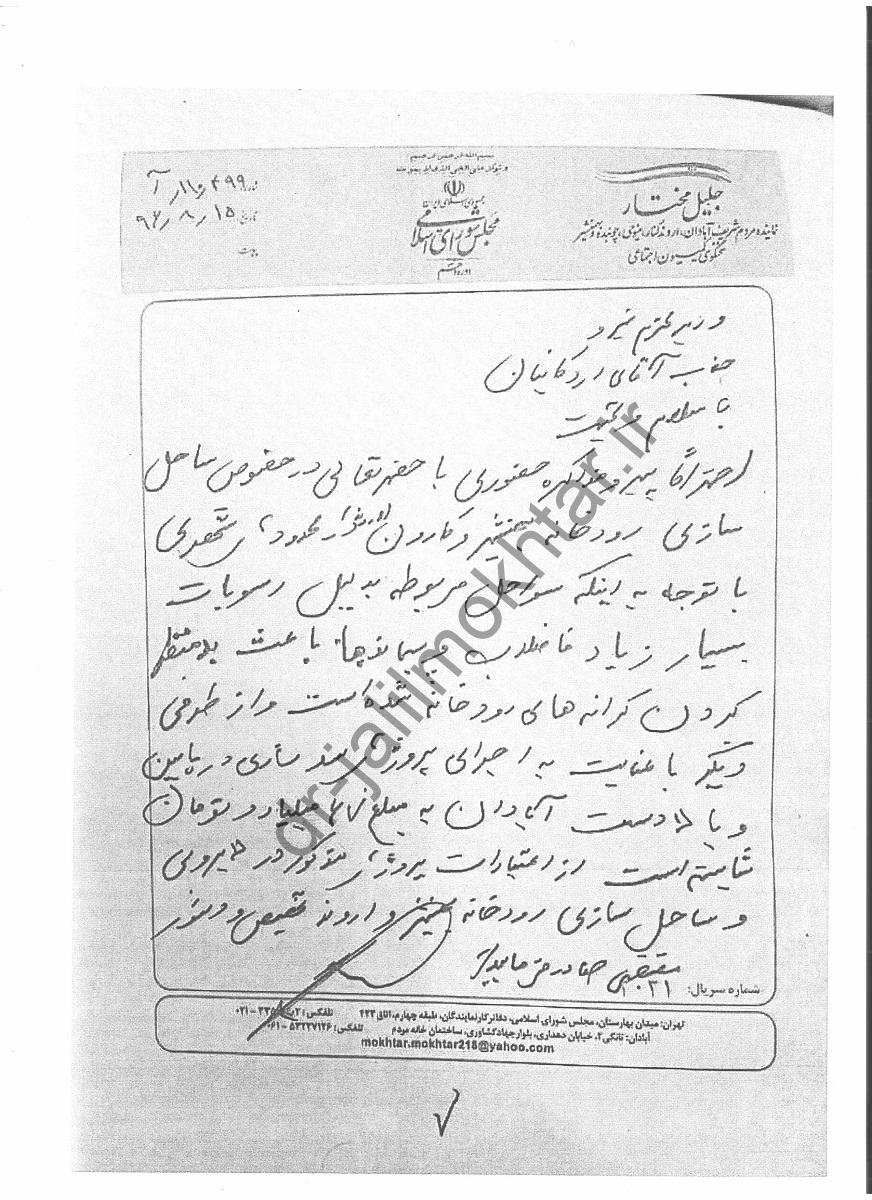 بسم الله الرحمن الرحیم
و توکل علی الحی الذی لا یموت
جمهوری اسلامی ایران
مجلس شورای اسلامی
دوره دهم
جلیل مختار
نماینده مردم شریف آبادان، اروندکنار، مینوی، چوئبده و بهمنشیر
سخنگوی کمیسیون اجتماعی
شماره:
تاریخ: ۹۶/۸/۱۵
پیوست:
وزیر محترم نیرو
جناب آقای اردکانیان
با سلام و تحیت
احتراماً پیرو مذاکره حضوری با حضرتعالی در خصوص ساحل
سازی رودخانه بهمنشیر و کارون محدوده شهری
با توجه به اینکه سواحل مربوطه بدلیل رسوبات
بسیار زیاد فاضلاب و پسماندها باعث بدمنظر
کردن کرانه های رودخانه شده است و از طرفی
دیگر با عنایت به اجرای پروژه سد سازی در پایین
دست آبادان به مبلغ میلیارد تومان
شایسته است از اعتبارات پروژه مذکور در لایروبی
و ساحل سازی رودخانه بهمنشیر و اروند تخصیص و دستور
مقتضی صادر فرمایید
شماره سریال: ۱۰۳۱
تهران: میدان بهارستان، مجلس شورای اسلامی، دفاتر کار نمایندگان، طبقه چهارم، اتاق ۴۲۳ تلفکس:
آبادان: تانکی ۲، خیابان دهداری، بلوار جهاد کشاورزی، ساختمان خانه مردم تلفکس: ۵۳۲۲۷۱۲۶ - ۰۶۱
mokhtar.mokhtar218@yahoo.com
dr-jalilmokhtar.ir